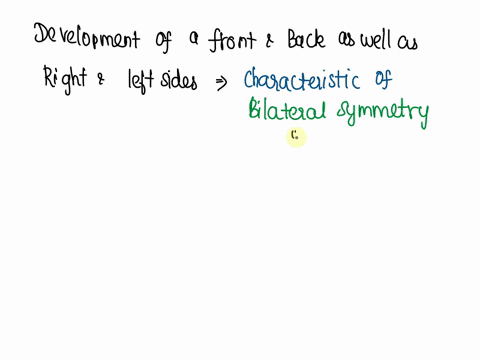 Development of a front & Back as well as
Right & left sides ⇒ Characteristic of
Bilateral symmetry